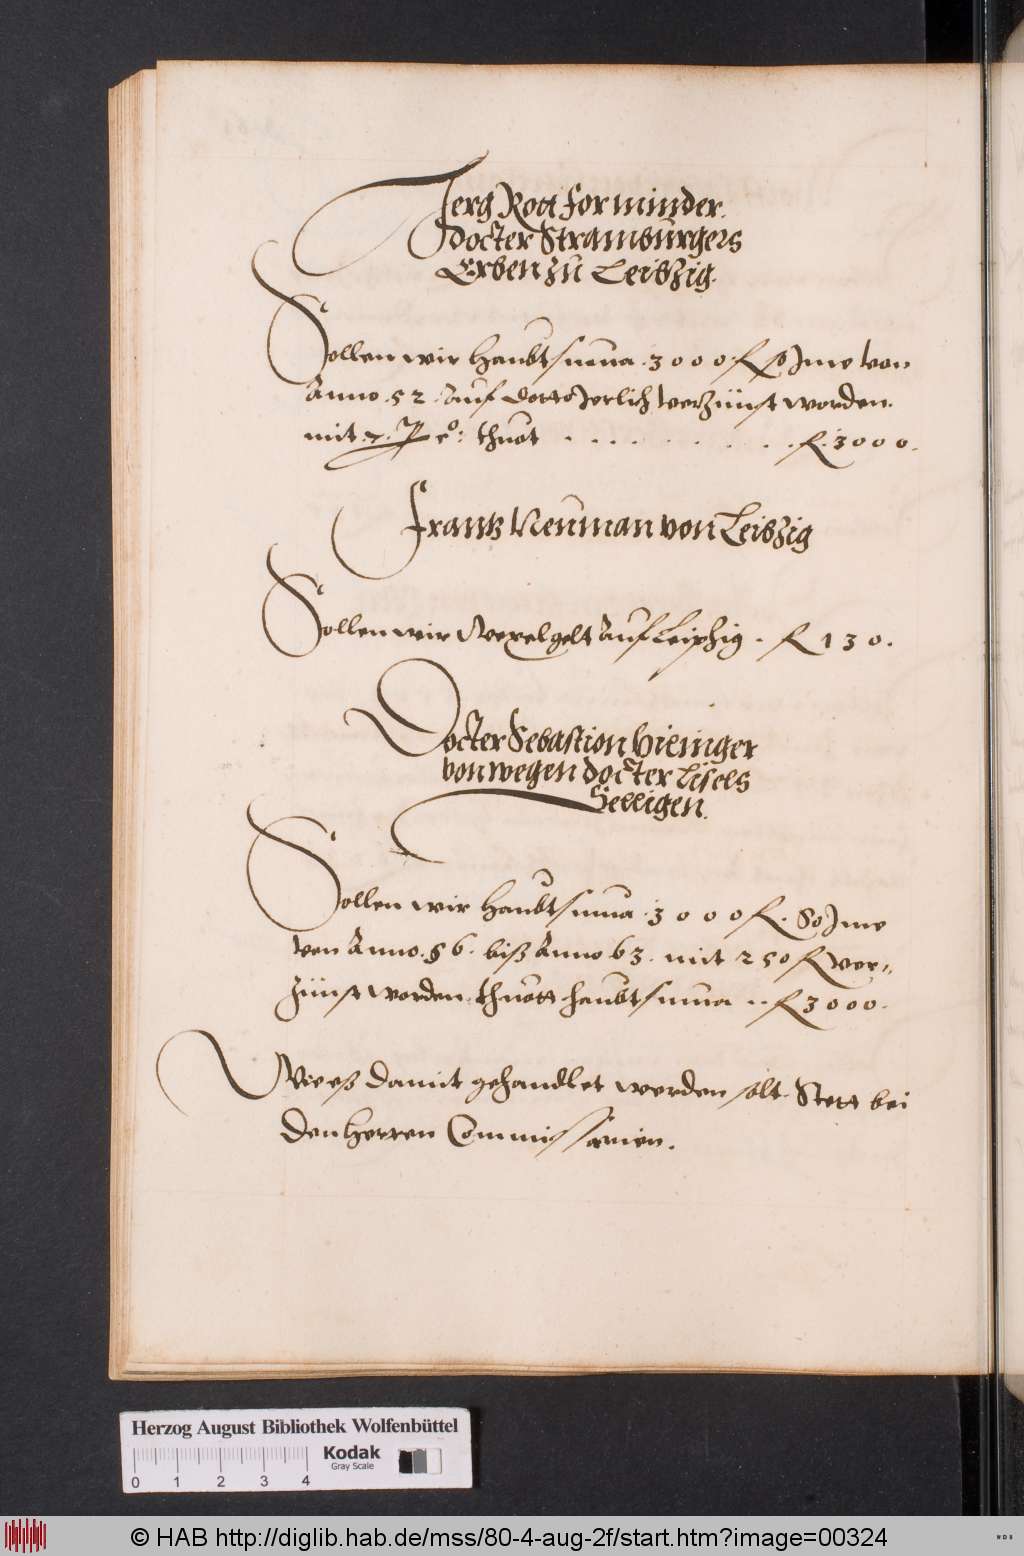 Jerg Rott forminder
docter Stramburgers
Erben zu Leibzig.
Sollen wir haubtsuma. 3000. fl. so Jme von
Anno. 52. auf dotto Jerlich verzünst worden.
mit. 7. P co: thuet . . . . . . . . fl. 3000.
Frantz Neuman von Leibzig
Sollen wir Wexelgelt auf Leipzig . fl 130.
Docter Sebastion Hieinger
von wegen docter Lisels
Selligen.
Sollen wir haubtsuma. 3000 fl. So Jme
von Anno. 56. biß Anno 63. mit 250 fl ver-
zünst worden. thuett haubtsuma .. fl 3000.
Wie eß damit gehandlet werden solt. Stett bei
den Herren Commissarien.
Herzog August Bibliothek Wolfenbüttel
Kodak
Gray Scale
0 1 2 3 4
© HAB http://diglib.hab.de/mss/80-4-aug-2f/start.htm?image=00324